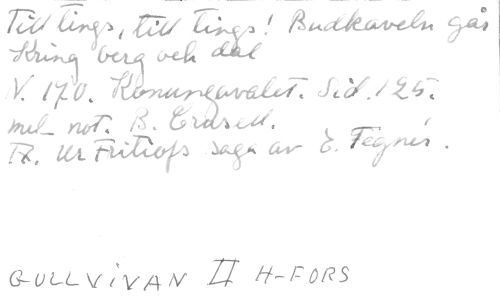 Till tings, till tings! Budkaveln går
kring berg och dal
N. 170. Konungavalet. Sid. 125.
mel not. B. Crusell.
Tx. Ur Fritiofs saga av E. Tegnér.
GULLVIVAN II H-FORS